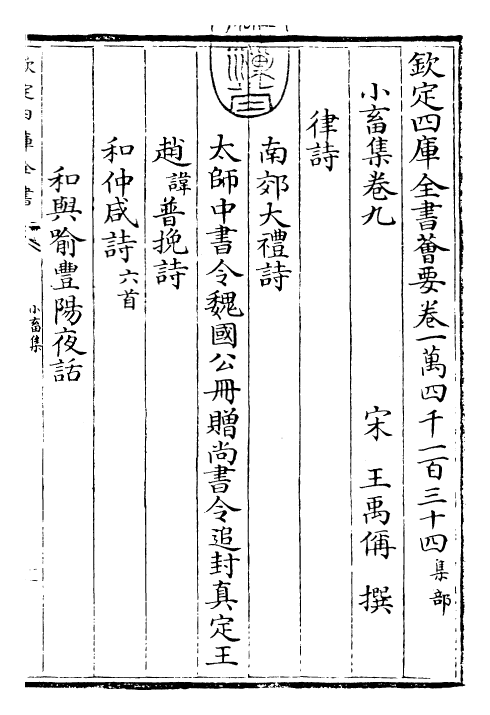 欽定四庫全書薈要卷一萬四千一百三十四集部
小畜集卷九 宋 王禹偁 撰
律詩
南郊大禮詩
太師中書令魏國公冊贈尚書令追封真定王
趙諱普挽詩
和仲咸詩六首
和與喻豐陽夜話
欽定四庫全書
小畜集